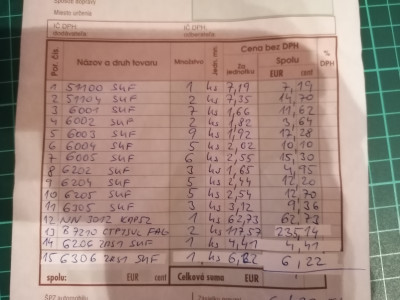 Spôsob dopravy
Miesto určenia
IČ DPH
dodávateľa
IČ DPH
odberateľa
Por. čís. Názov a druh tovaru Množstvo Jedn. mn. Cena bez DPH % DPH
Za jednotku Spolu
EUR cent
1 51100 SKF 1 ks 7,19 7,19
2 51104 SKF 2 ks 7,35 14,70
3 6001 SKF 7 ks 1,66 11,62
4 6002 SKF 2 ks 1,82 3,64
5 6003 SKF 9 ks 1,92 17,28
6 6004 SKF 5 ks 2,02 10,10
7 6005 SKF 6 ks 2,55 15,30
8 6202 SKF 3 ks 1,65 4,95
9 6204 SKF 5 ks 2,44 12,20
10 6205 SKF 5 ks 2,54 12,70
11 6305 SKF 3 ks 3,12 9,36
12 NN 3012 1 ks 62,73 62,73
13 B7210 2 ks 117,57 235,14
14 6206 2RS1 SKF 1 ks 4,41 4,41
15 6306 2RS1 SKF 1 ks 6,22 6,22
spolu: EUR cent Celková suma EUR cent